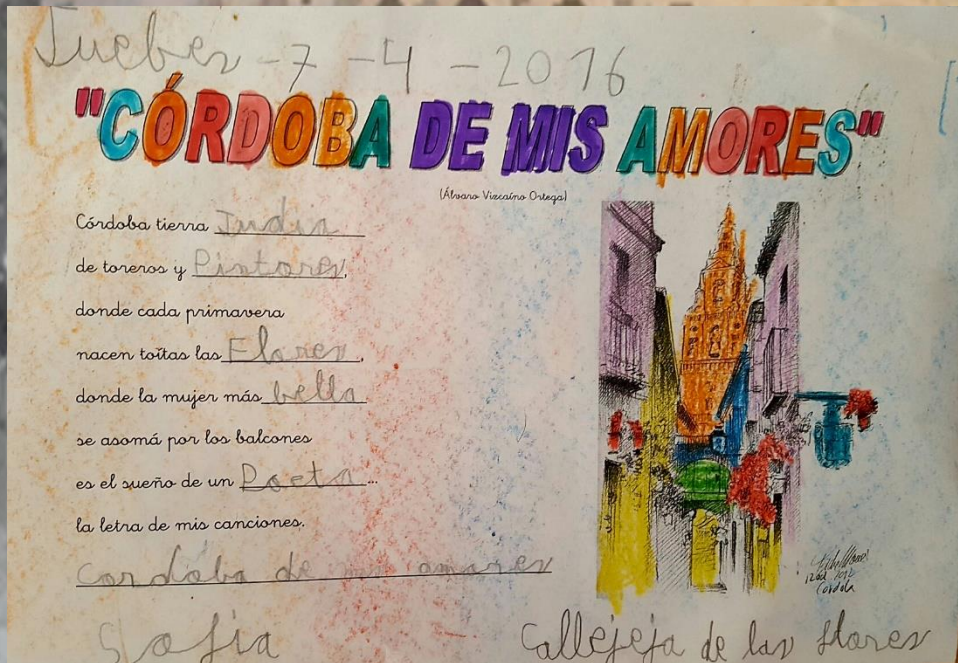 Juebes -7 -4 - 2016
"CÓRDOBA DE MIS AMORES"
(Álvaro Vizcaíno Ortega)
Córdoba tierra Judia
de toreros y Pintores,
donde cada primavera
nacen toítas las Flores,
donde la mujer más bella
se asomá por los balcones
es el sueño de un Poeta...
la letra de mis canciones.
Cordoba de mis amores
12 oct 2012
Cordoba
Sofia
Callejeja de las flores